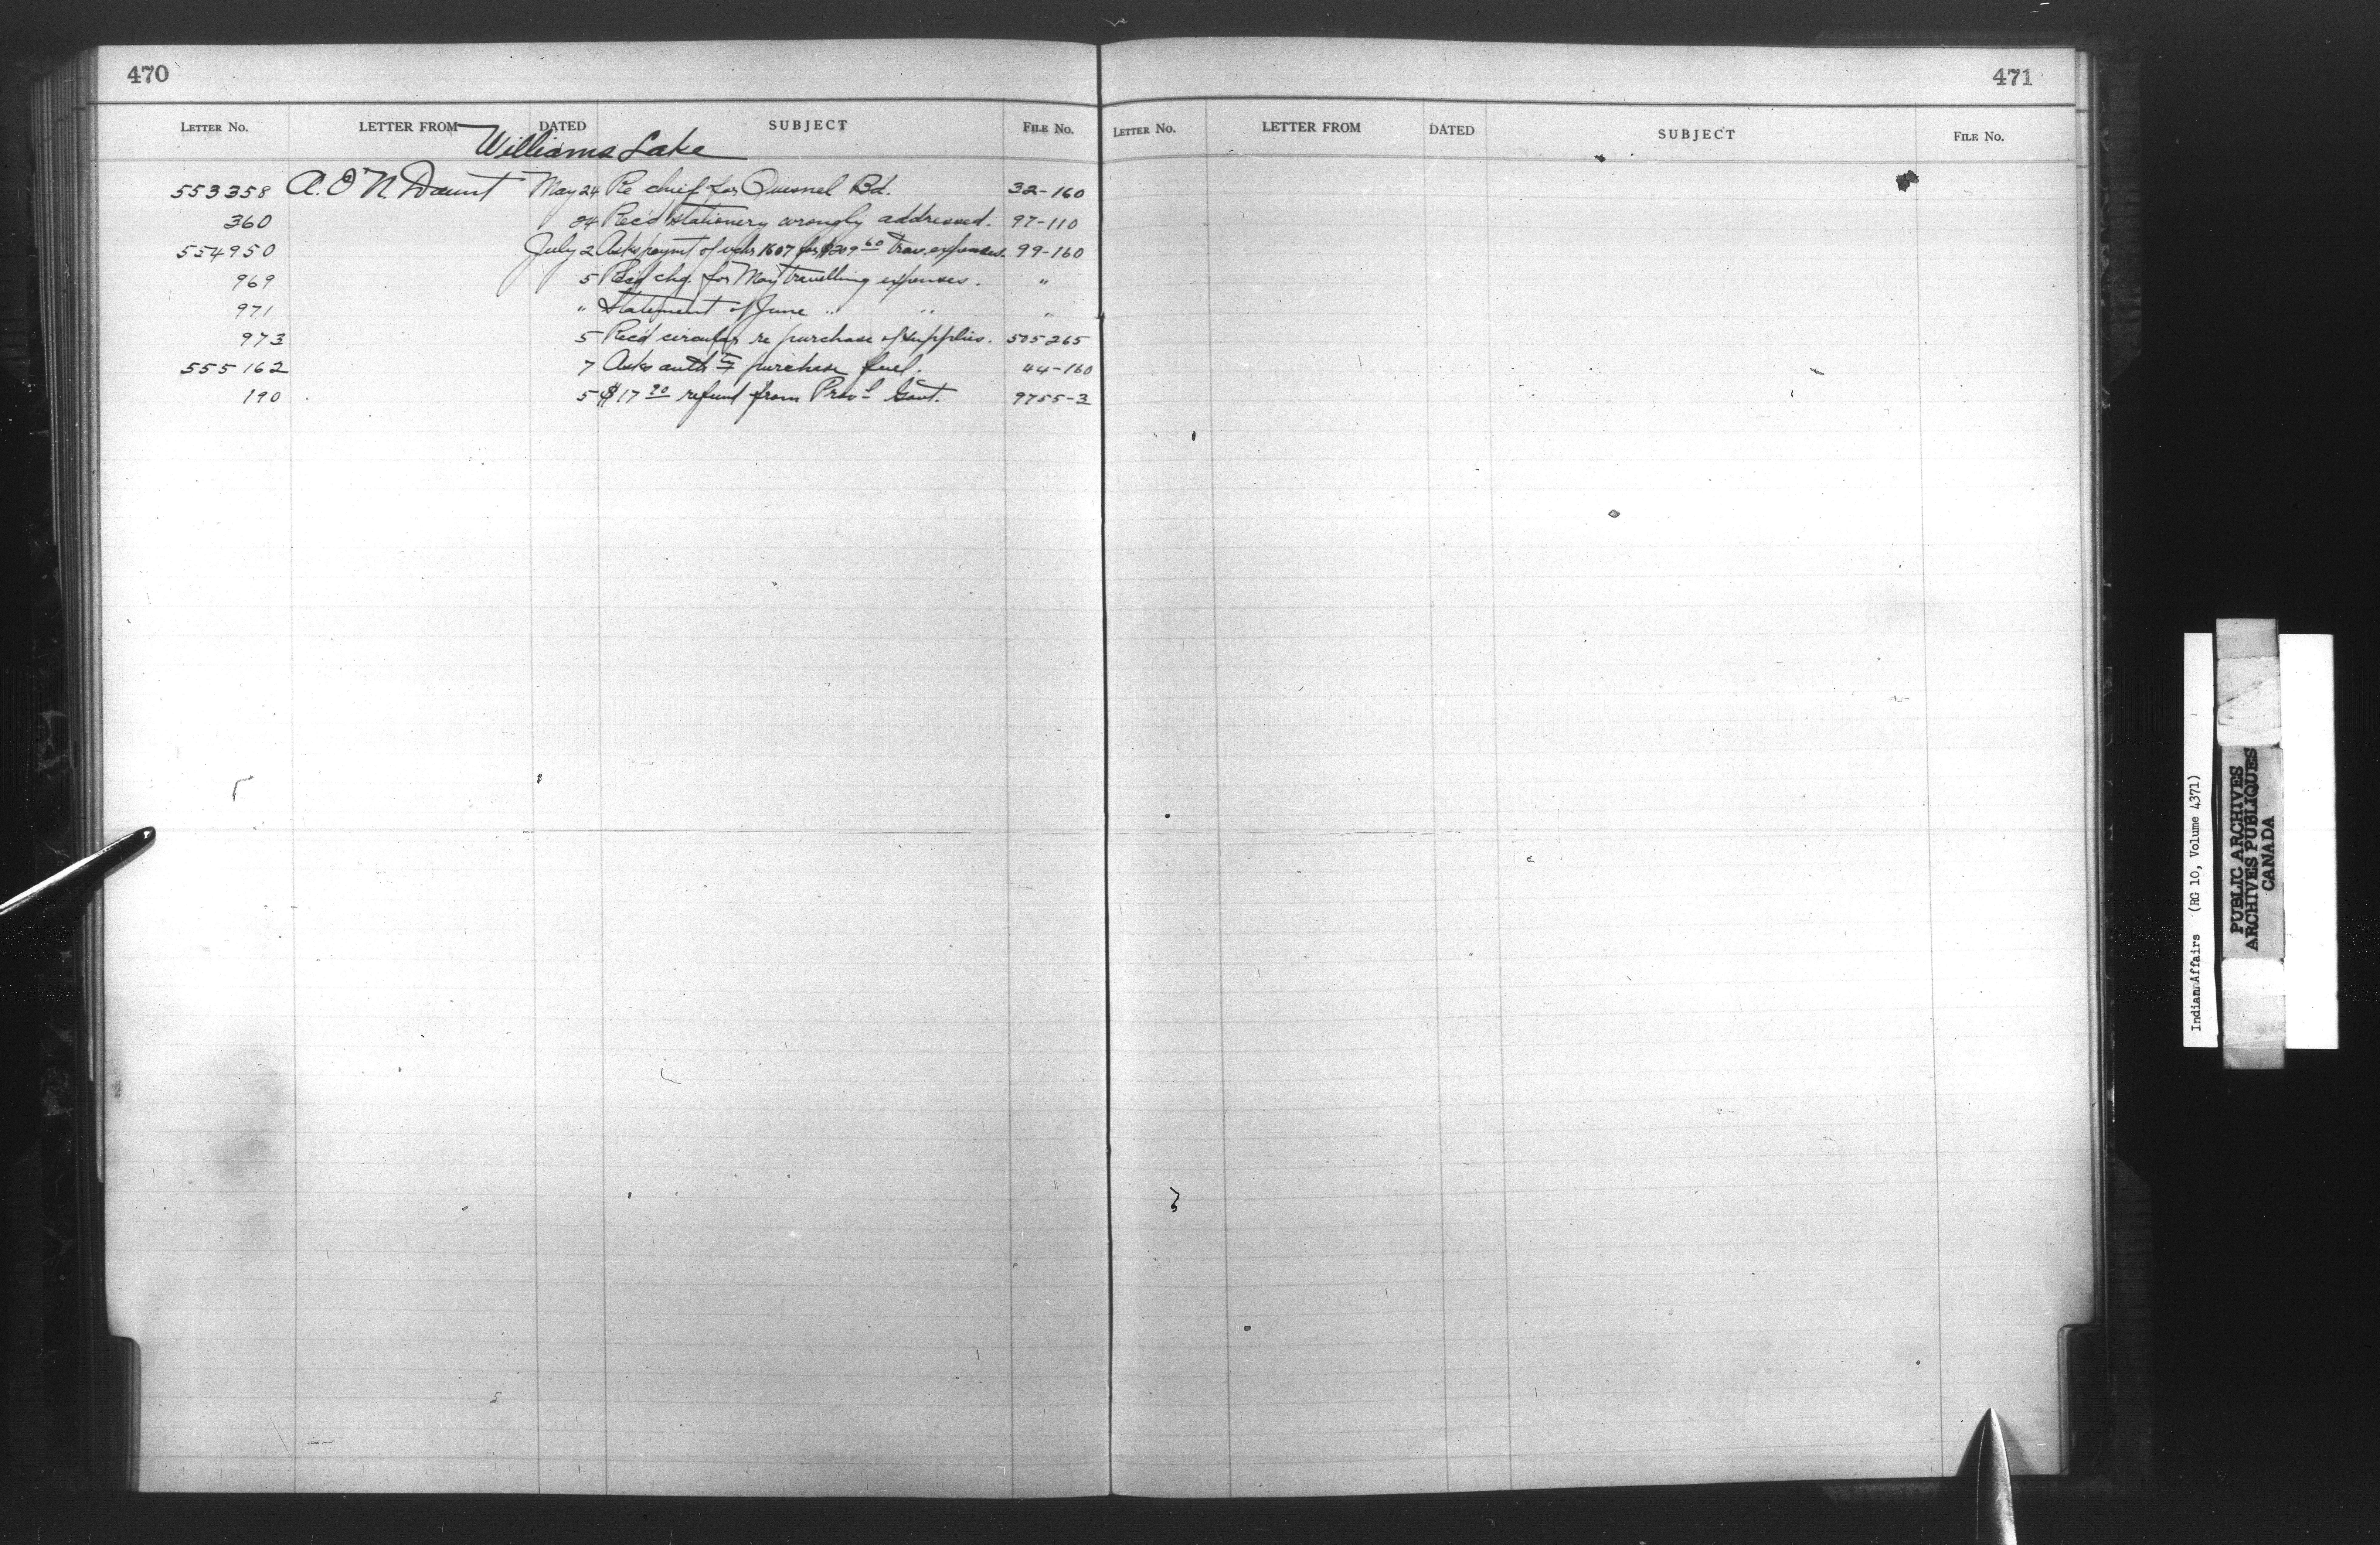 470
LETTER NO. LETTER FROM DATED SUBJECT FILE NO.
Williams Lake
553358 A. O'N Daunt May 24 Re chief for Quesnel Bd. 32-160
360 24 Rec'd stationery wrongly addressed. 97-110
554950 July 2 Asks paymt of vchr 1607 for $209 60 Trav. expenses. 99-160
969 5 chq. for May travelling expenses. "
971 " Statement of June " " "
973 5 Rec'd circular re purchase of supplies. 505265
555162 7 Asks auth to purchase fuel. 44-160
190 5 $17 20 refund from Prov l Govt. 9755-3
471
LETTER NO. LETTER FROM DATED SUBJECT FILE NO.
Indian Affairs (RG 10, Volume 4371)
PUBLIC ARCHIVES
ARCHIVES PUBLIQUES
CANADA